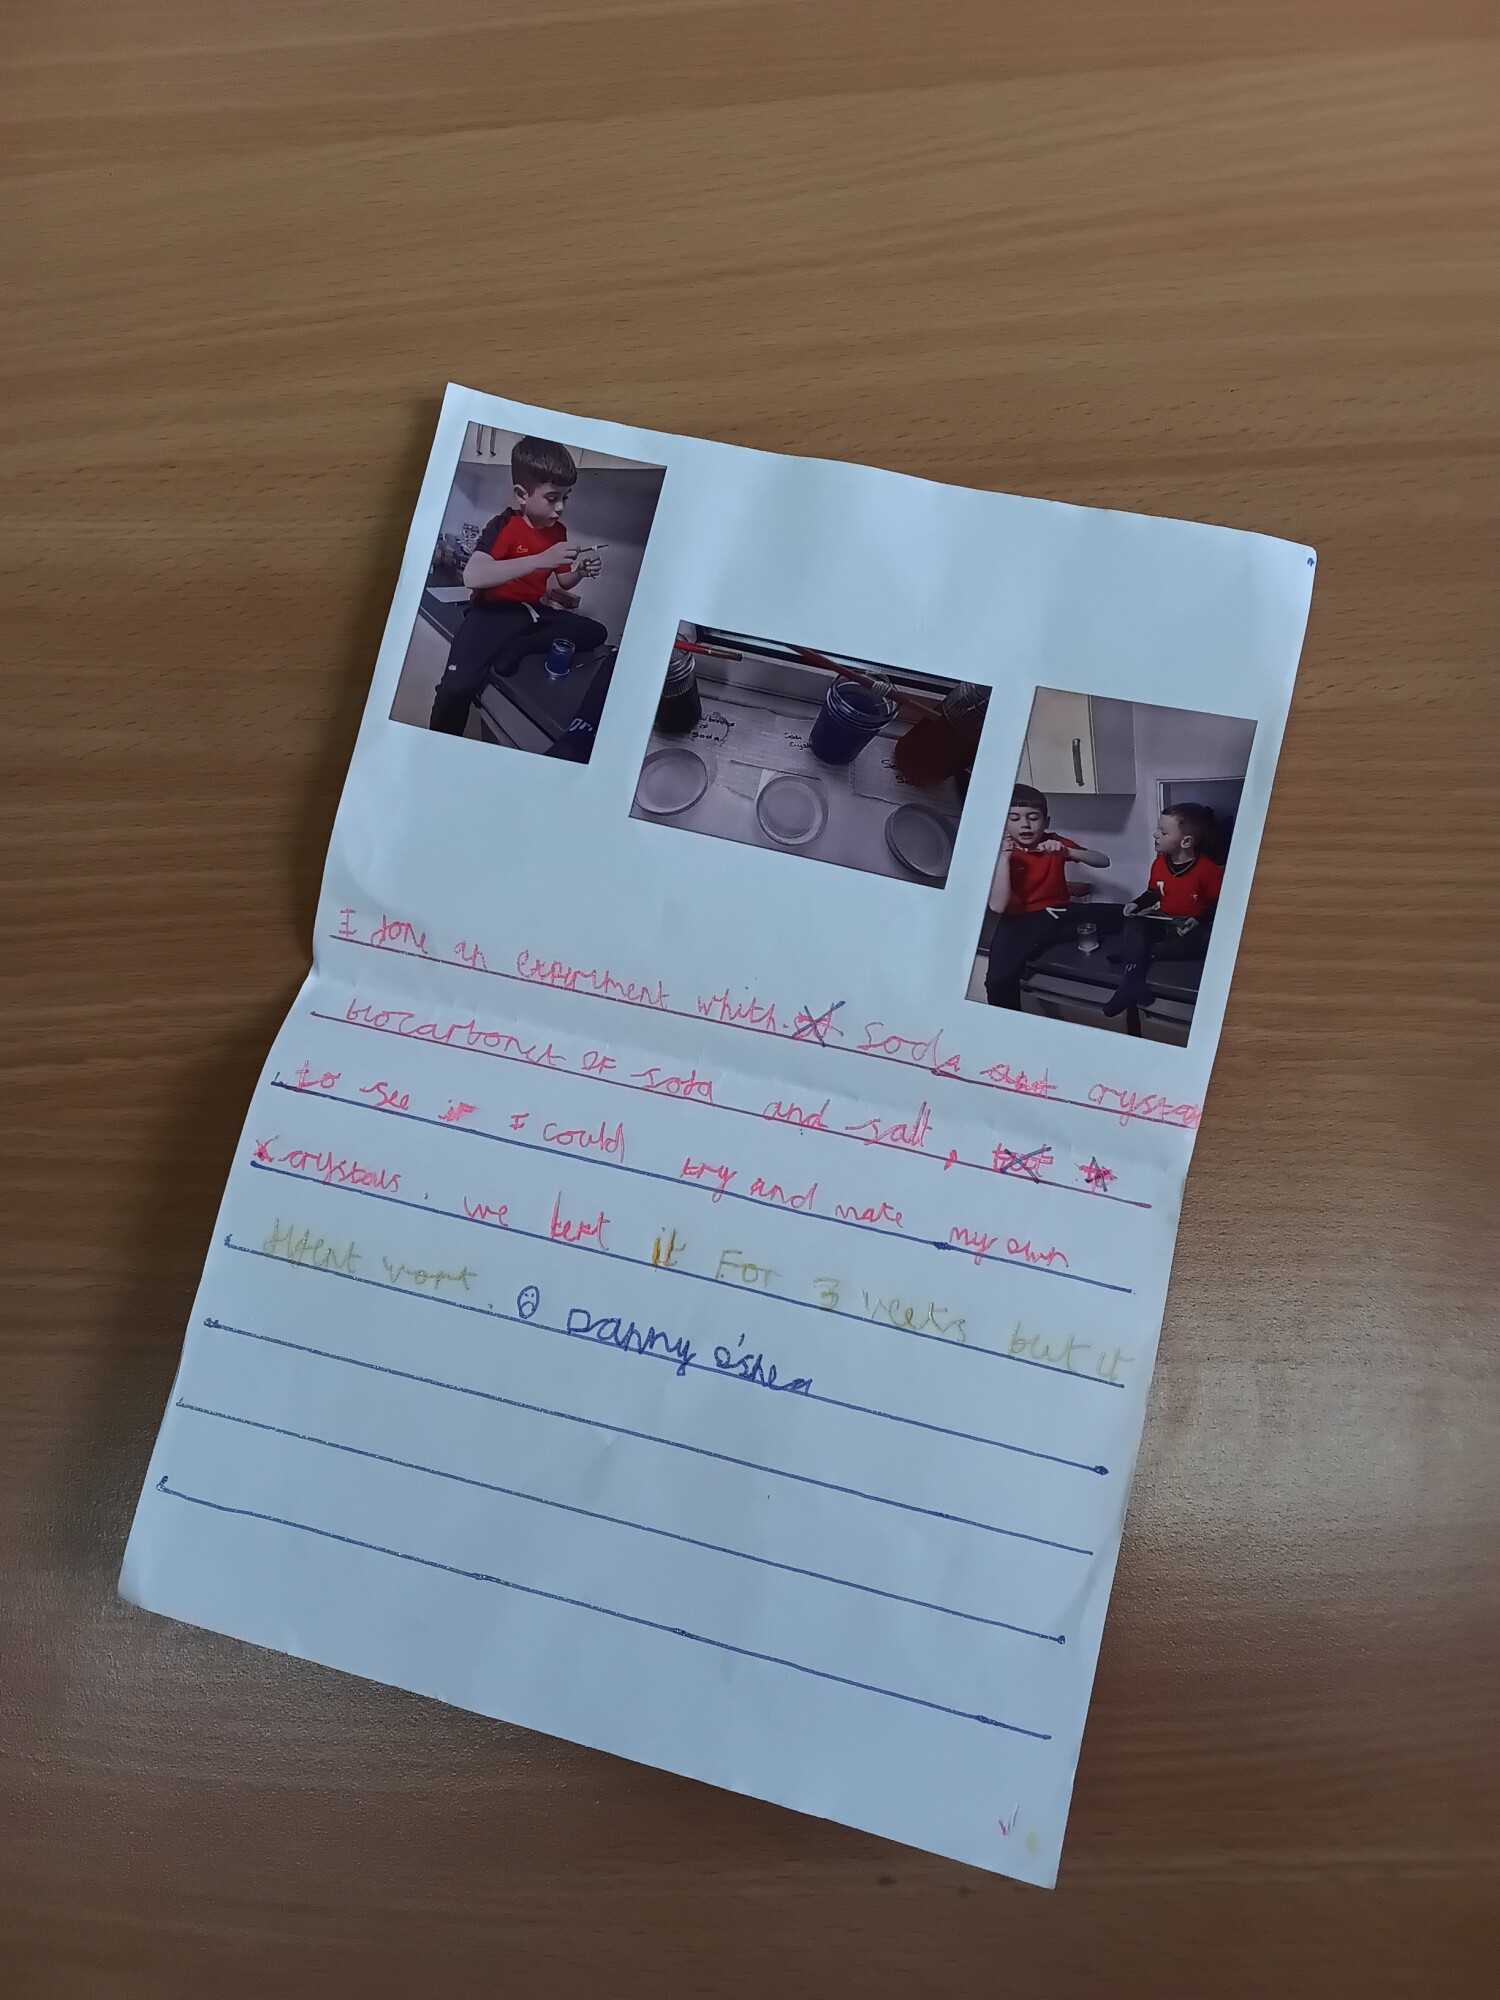 I done an experiment whith soda and crystals
biocarbonet of soda and salt,
to see if I could try and make my own
crystals. we kert it For 3 weeks but it
dident work. Danny o'shea
Soda